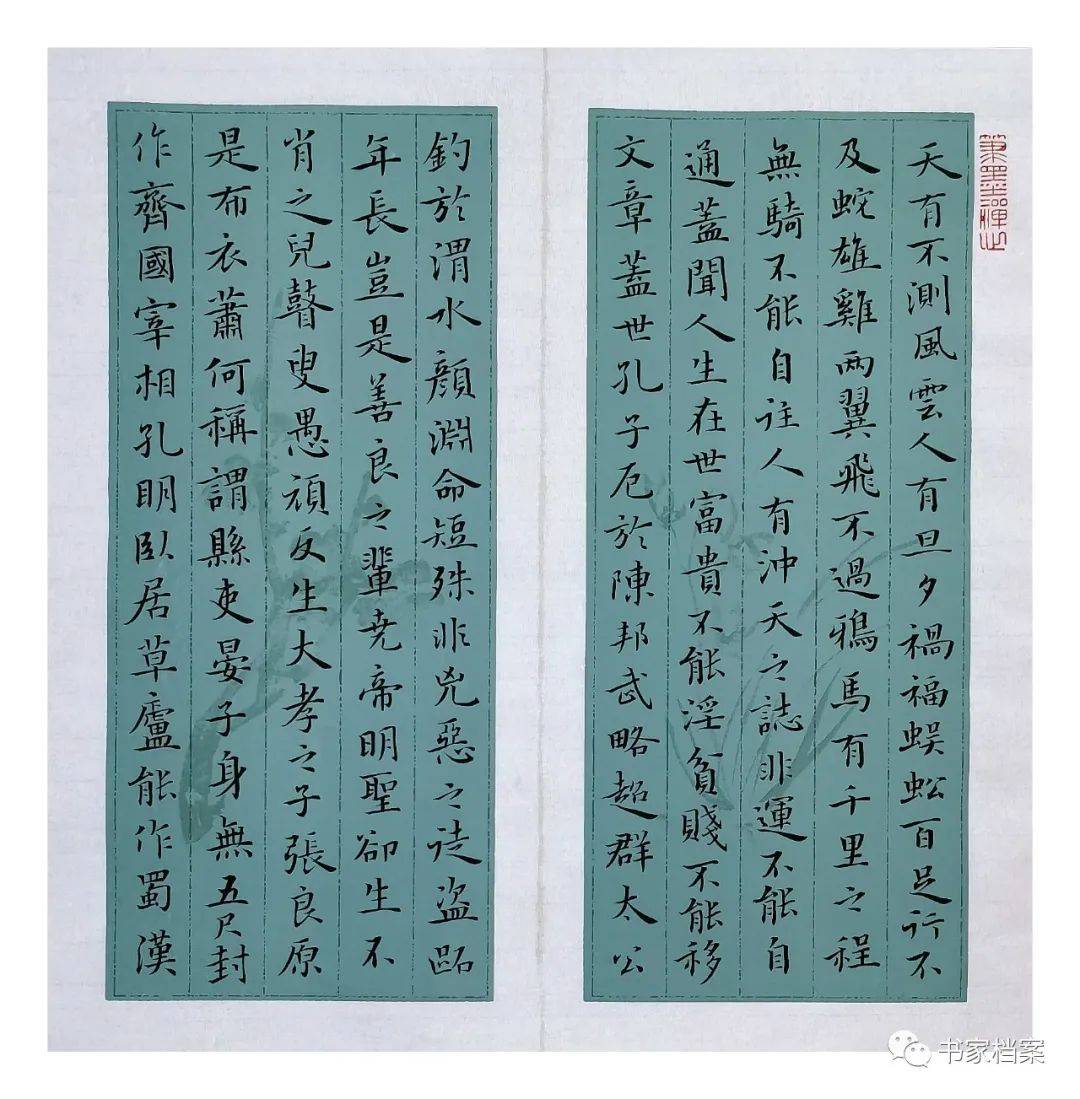 筆墨禪心
天有不測風雲人有旦夕禍福蜈蚣百足行不
及蛇雄雞兩翼飛不過鴉馬有千里之程
無騎不能自往人有沖天之誌非運不能自
通蓋聞人生在世富貴不能淫貧賤不能移
文章蓋世孔子厄於陳邦武略超群太公
釣於渭水顏淵命短殊非兇惡之徒盜跖
年長豈是善良之輩堯帝明聖卻生不
肖之兒瞽叟愚頑反生大孝之子張良原
是布衣蕭何稱謂縣吏晏子身無五尺封
作齊國宰相孔明臥居草廬能作蜀漢
书家档案